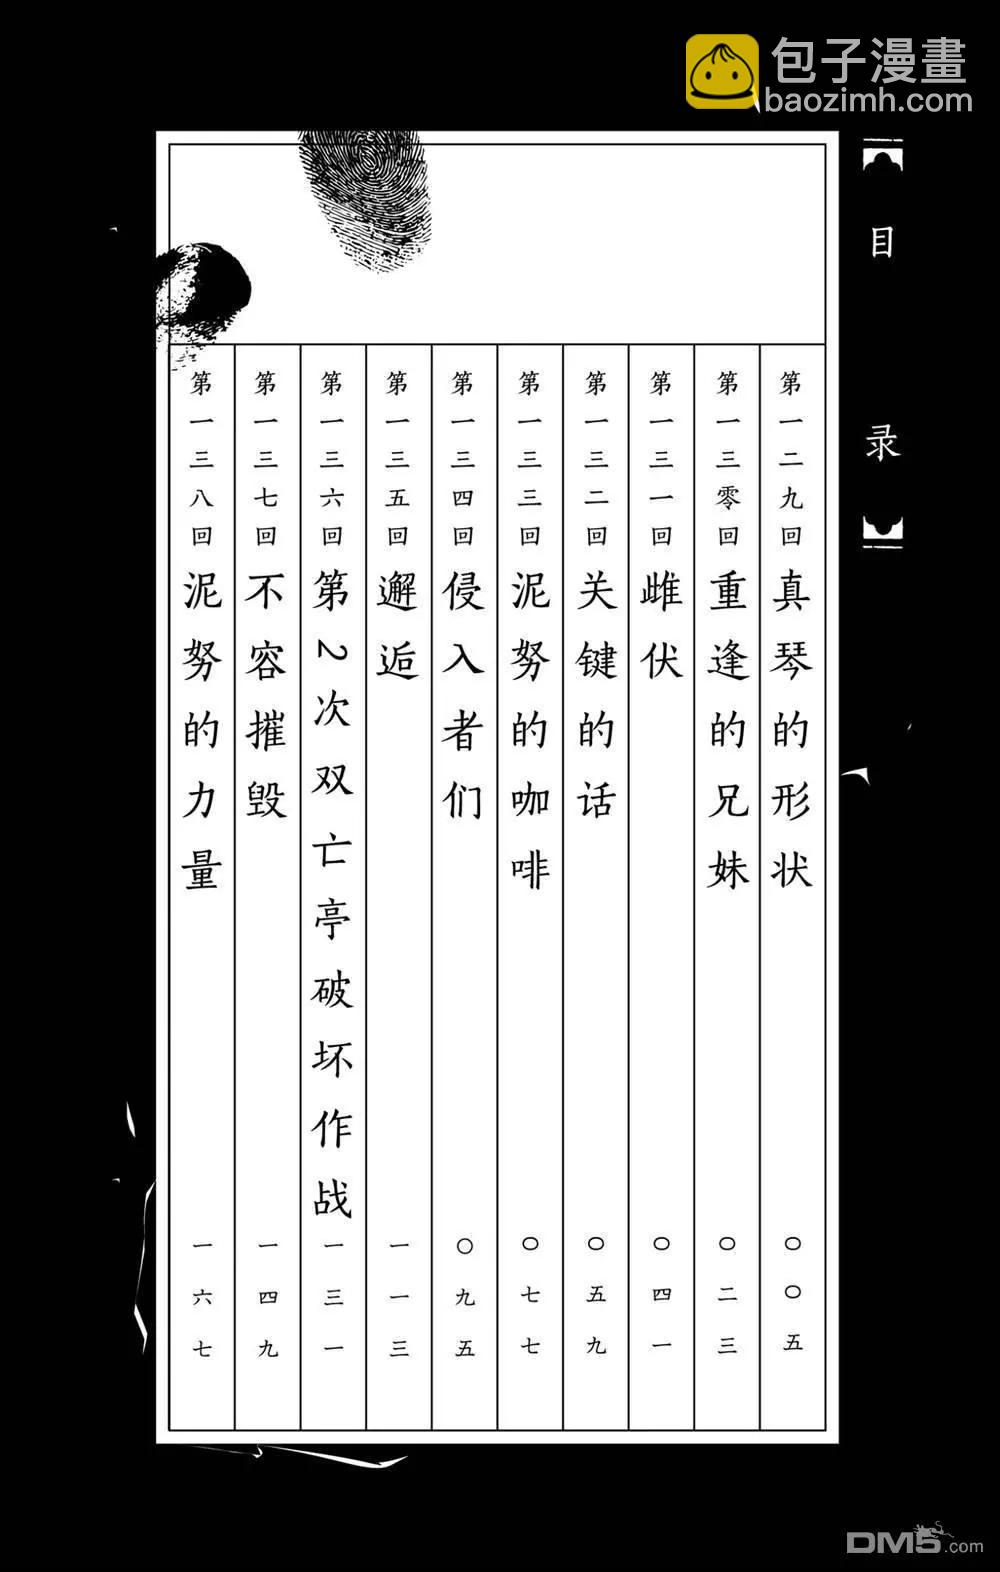 包子漫畫
baozimh.com
目录
第一二九回 真琴的形状 〇〇五
第一三零回 重逢的兄妹 〇二三
第一三一回 雌伏 〇四一
第一三二回 关键的话 〇五九
第一三三回 泥努的咖啡 〇七七
第一三四回 侵入者们 〇九五
第一三五回 邂逅 一一三
第一三六回 第2次双亡亭破坏作战 一三一
第一三七回 不容摧毁 一四九
第一三八回 泥努的力量 一六七
DM5.com